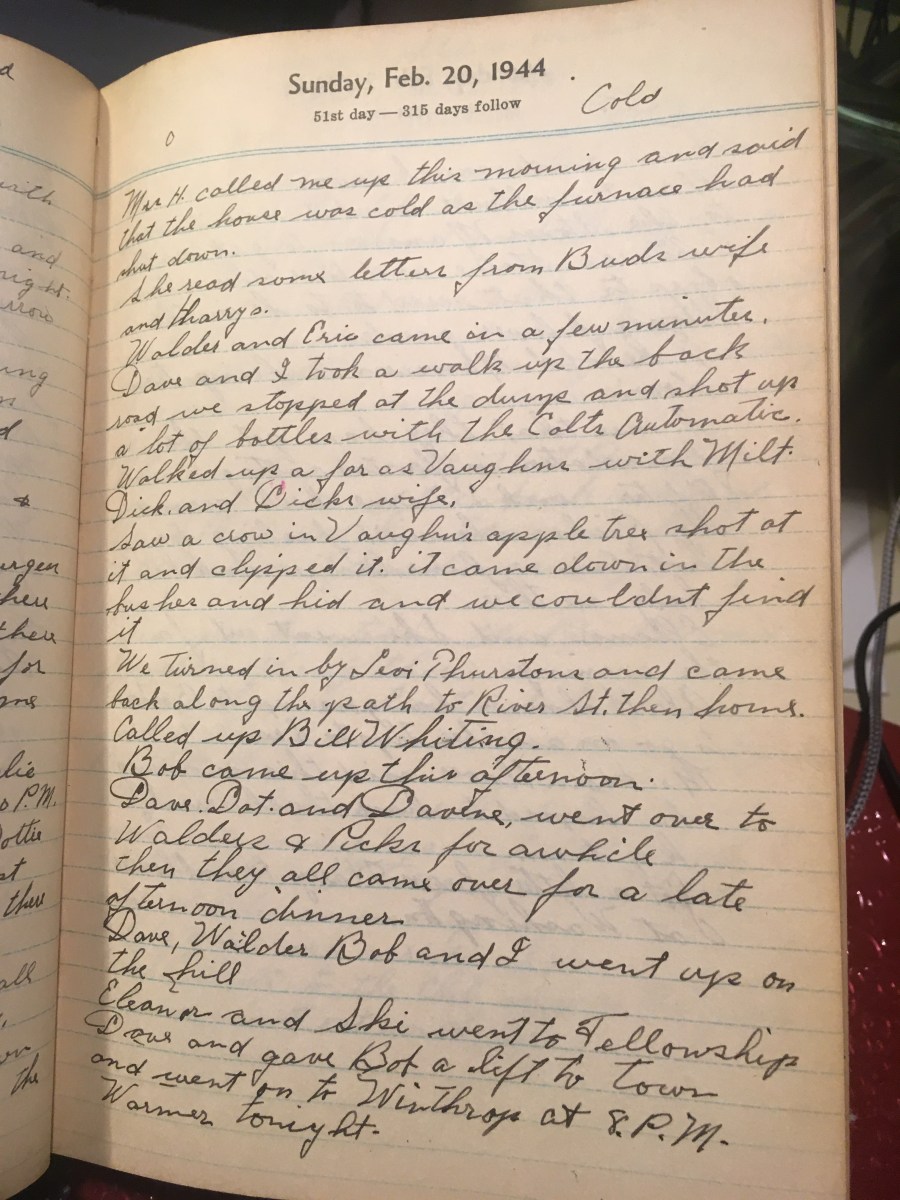 Sunday, Feb. 20, 1944
51st day — 315 days follow
Cold
Mrs H. called me up this morning and said
that the house was cold as the furnace had
shut down.
She read some letters from Buds wife
and Harrys.
Walder and Eric came in a few minutes.
Dave and I took a walk up the back
road we stopped at the dump and shot up
a lot of bottles with the Colts Automatic.
Walked up a far as Vaughns with Milt.
Dick. and Dicks wife.
Saw a crow in Vaughn's apple tree shot at
it and clipped it. it came down in the
bushes and hid and we couldnt find
it
We turned in by Levi Thurstons and came
back along the path to River St. then home.
Called up Bill Whiting.
Bob came up this afternoon.
Dave. Dot. and Davine, went over to
Walders & Picks for awhile
then they all came over for a late
afternoon dinner
Dave, Walder Bob and I went up on
the hill
Eleanor and Ski went to Fellowship
Dave and gave Bob a lift to town
and went on to Winthrop at 8. P.M.
Warmer tonight.
with
and
night.
ing
for
P.M.
Dottie
all
the